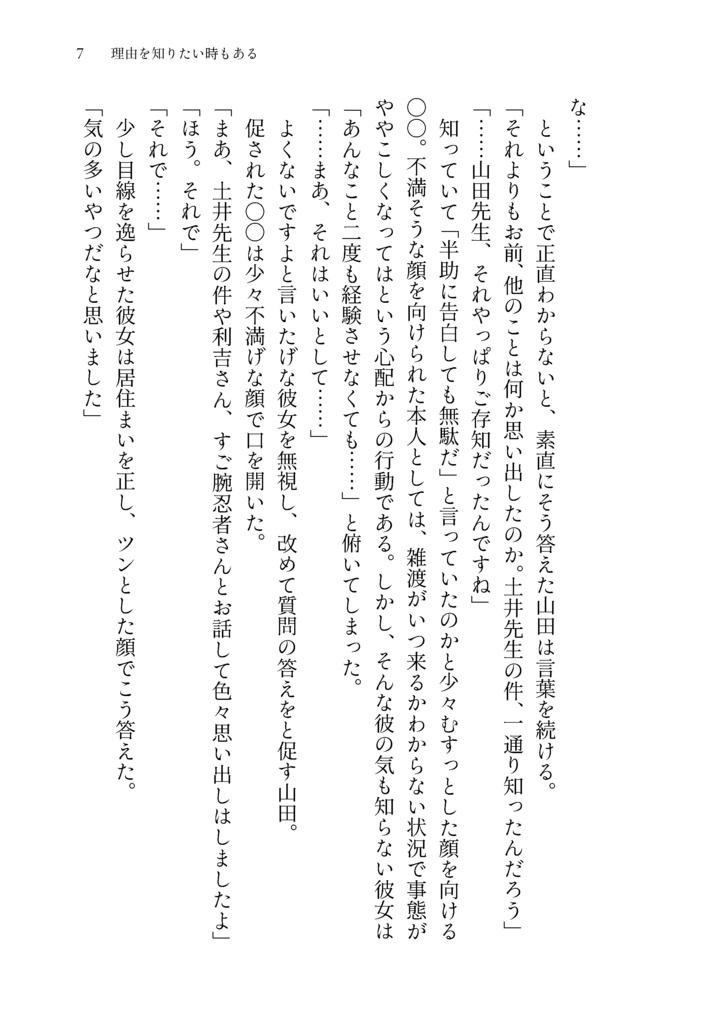 7　理由を知りたい時もある
な……」
　ということで正直わからないと、素直にそう答えた山田は言葉を続ける。
「それよりもお前、他のことは何か思い出したのか。土井先生の件、一通り知ったんだろう」
「……山田先生、それやっぱりご存知だったんですね」
　知っていて「半助に告白しても無駄だ」と言っていたのかと少々むすっとした顔を向ける
〇〇。不満そうな顔を向けられた本人としては、雑渡がいつ来るかわからない状況で事態が
ややこしくなってはという心配からの行動である。しかし、そんな彼の気も知らない彼女は
「あんなこと二度も経験させなくても……」と俯いてしまった。
「……まあ、それはいいとして……」
　よくないですよと言いたげな彼女を無視し、改めて質問の答えをと促す山田。
　促された〇〇は少々不満げな顔で口を開いた。
「まあ、土井先生の件や利吉さん、すご腕忍者さんとお話して色々思い出しはしましたよ」
「ほう。それで」
「それで……」
　少し目線を逸らせた彼女は居住まいを正し、ツンとした顔でこう答えた。
「気の多いやつだなと思いました」